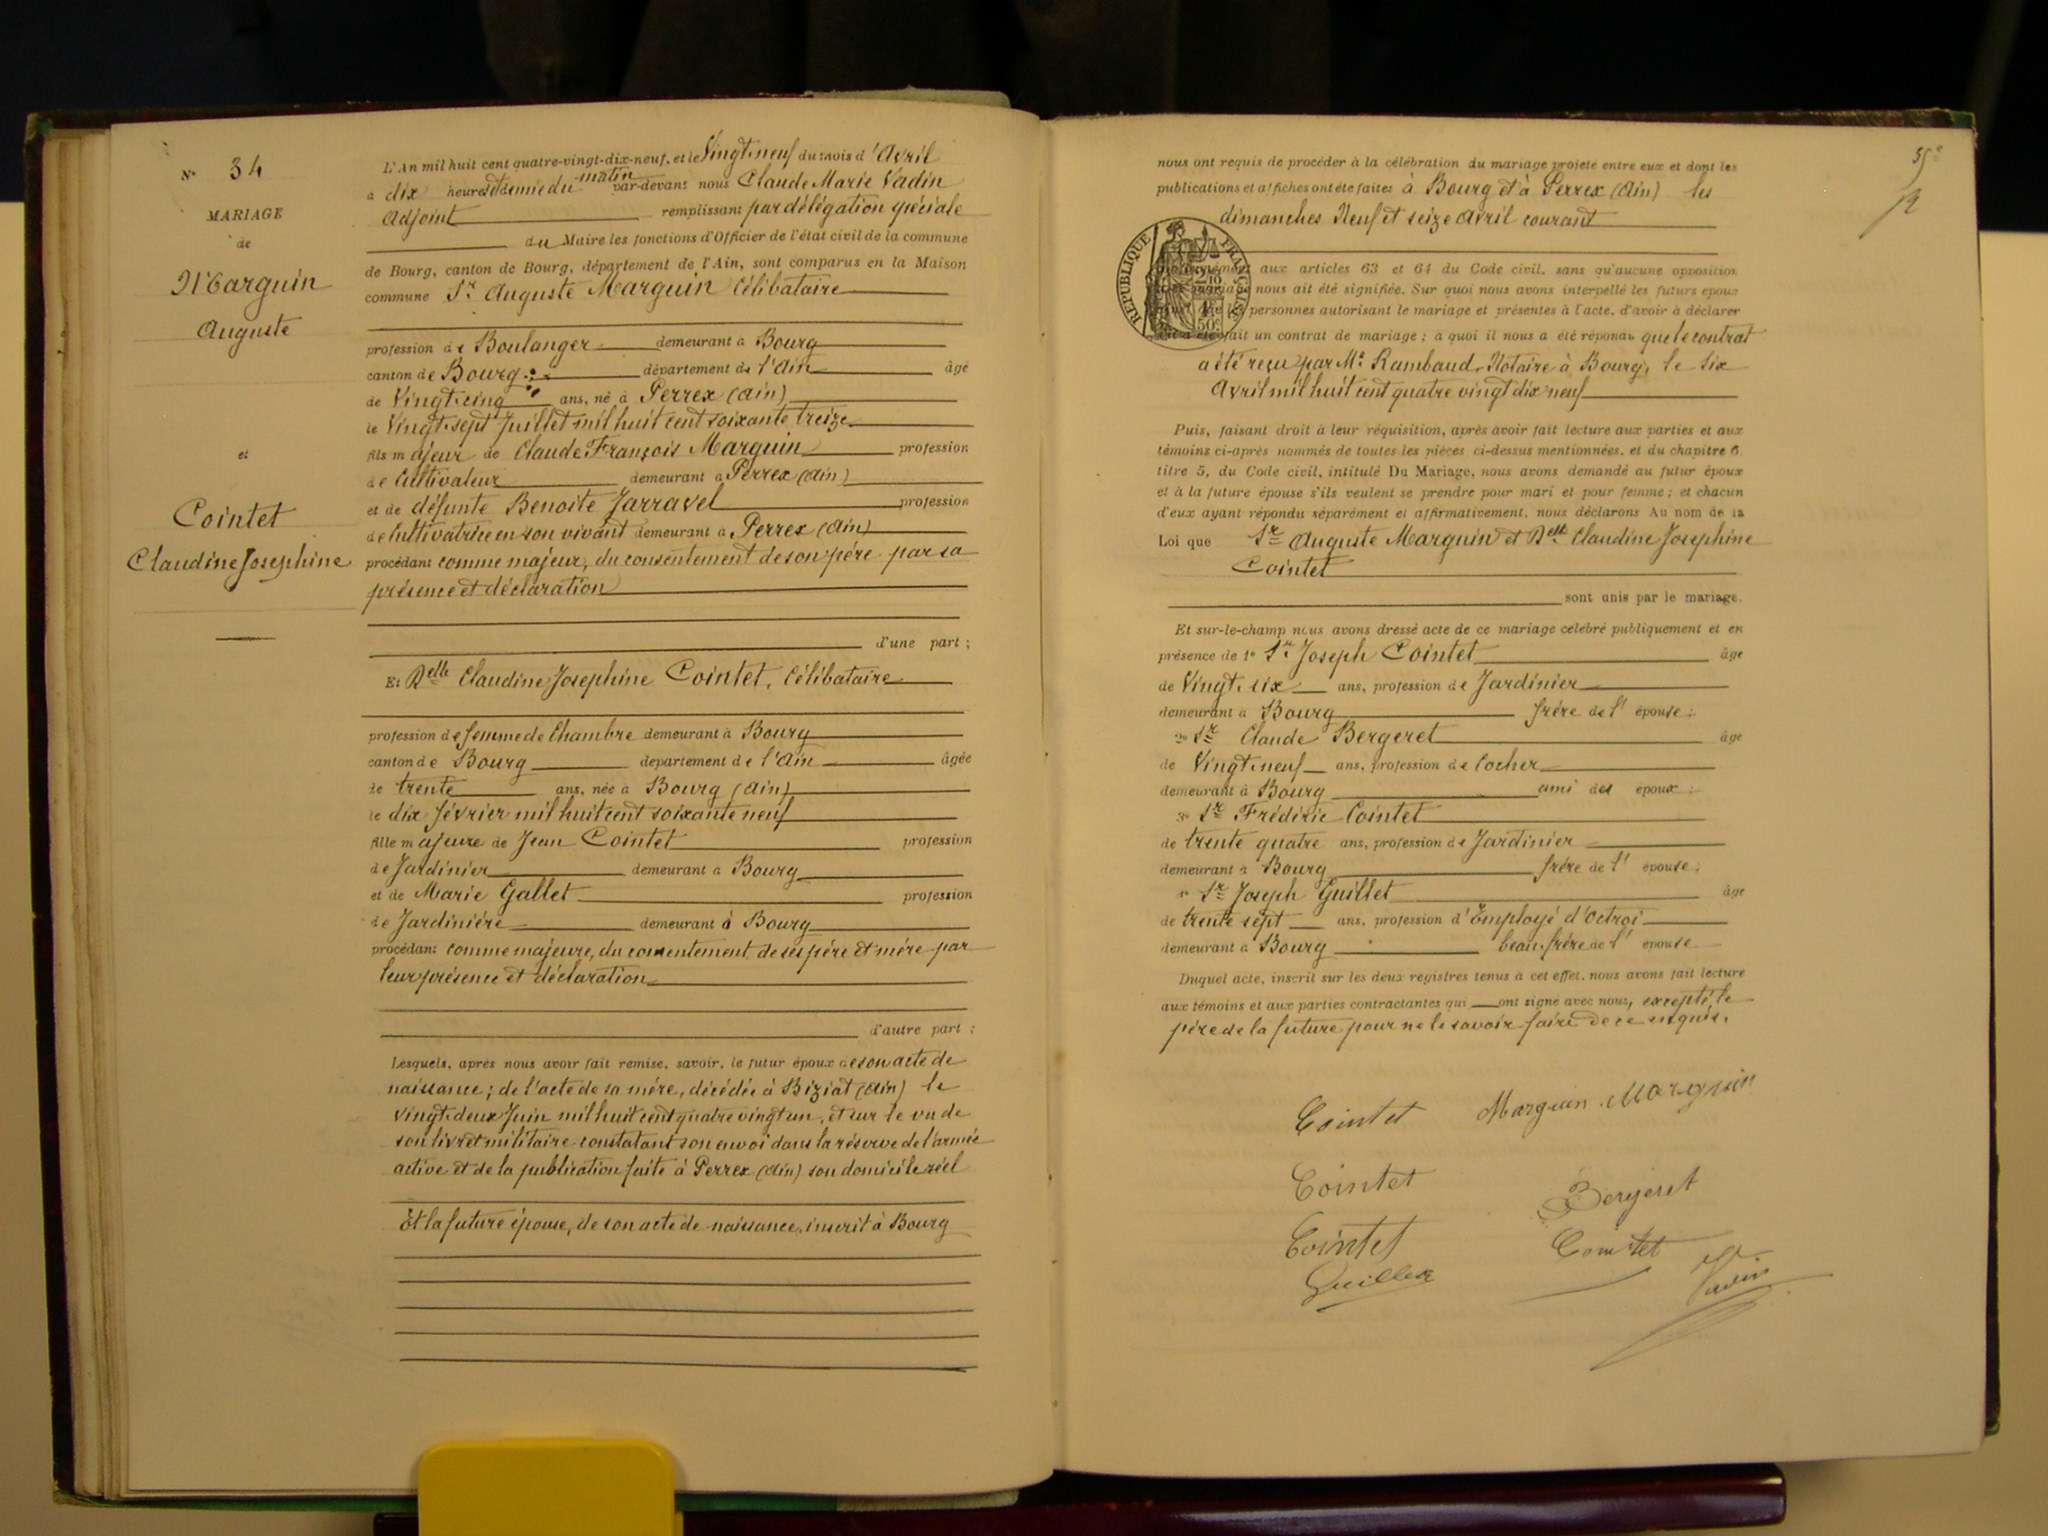 N° 34
MARIAGE
de
Marguin
Auguste
et
Cointet
Claudine Josephine
L'An mil huit cent quatre-vingt-dix-neuf, et le Vingt-neuf du mois d'Avril
à dix heures et demie du matin par-devant nous Claude Marie Vadin
Adjoint remplissant par délégation spéciale
du Maire les fonctions d'Officier de l'état civil de la commune
de Bourg, canton de Bourg, département de l'Ain, sont comparus en la Maison
commune Sr. Auguste Marguin Célibataire
profession de Boulanger demeurant à Bourg
canton de Bourg département de l'Ain âgé
de Vingt-cinq ans, né à Perrex (Ain)
le Vingt-sept Juillet mil huit cent soixante treize
fils majeur de Claude François Marguin profession
de Cultivateur demeurant à Perrex (Ain)
et de défunte Benoite Jarravel profession
de Cultivatrice en son vivant demeurant à Perrex (Ain)
procédant comme majeur, du consentement de son père par sa
présence et déclaration
d'une part ;
Et Delle Claudine Josephine Cointet, Célibataire
profession de femme de Chambre demeurant à Bourg
canton de Bourg département de l'Ain âgée
de trente ans, née à Bourg (Ain)
le dix février mil huit cent soixante neuf
fille majeure de Jean Cointet profession
de Jardinier demeurant à Bourg
et de Marie Gallet profession
de Jardinière demeurant à Bourg
procédant comme majeure, du consentement de ses père et mère par
leur présence et déclaration
d'autre part ;
Lesquels, après nous avoir fait remise, savoir, le futur époux de son acte de
naissance ; de l'acte de sa mère, décédée à Biziat (Ain) le
vingt-deux Juin mil huit cent quatre vingt un, et sur le vu de
son livret militaire constatant son envoi dans la réserve de l'armée
active et de la publication faite à Perrex (Ain) son domicile réel
Et la future épouse, de son acte de naissance, inscrit à Bourg
nous ont requis de procéder à la célébration du mariage projeté entre eux et dont les
publications et affiches ont été faites à Bourg et à Perrex (Ain) les
dimanches Neuf et seize Avril courant
RÉPUBLIQUE FRANÇAISE
aux articles 63 et 64 du Code civil, sans qu'aucune opposition
nous ait été signifiée. Sur quoi nous avons interpellé les futurs époux
personnes autorisant le mariage et présentes à l'acte, d'avoir à déclarer
fait un contrat de mariage ; à quoi il nous a été répondu que le contrat
a été reçu par Me. Rambaud, Notaire à Bourg, le six
Avril mil huit cent quatre vingt dix neuf
Puis, faisant droit à leur réquisition, après avoir fait lecture aux parties et aux
témoins ci-après nommés de toutes les pièces ci-dessus mentionnées, et du chapitre 6
titre 5, du Code civil, intitulé Du Mariage, nous avons demandé au futur époux
et à la future épouse s'ils veulent se prendre pour mari et pour femme ; et chacun
d'eux ayant répondu séparément et affirmativement, nous déclarons Au nom de la
Loi que Sr Auguste Marguin et Delle Claudine Josephine
Cointet
sont unis par le mariage.
Et sur-le-champ nous avons dressé acte de ce mariage célébré publiquement et en
présence de 1° Sr Joseph Cointet âgé
de Vingt-six ans, profession de Jardinier
demeurant à Bourg frère de l'épouse ;
2° Sr Claude Bergeret âgé
de Vingt-neuf ans, profession de Cocher
demeurant à Bourg ami des époux ;
3° Sr Frédéric Cointet
de trente quatre ans, profession de Jardinier
demeurant à Bourg frère de l'épouse ;
4° Sr Joseph Guillet âgé
de trente sept ans, profession d'Employé d'Octroi
demeurant à Bourg beau-frère de l'épouse
Duquel acte, inscrit sur les deux registres tenus à cet effet, nous avons fait lecture
aux témoins et aux parties contractantes qui ont signé avec nous, excepté le
père de la future pour ne le savoir faire de ce enquis.
Cointet Marguin Marguin
Cointet Bergeret
Cointet Cointet
Guillet Vadin